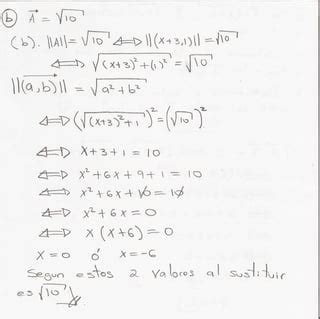 (b) A⃗ = √10
(b). ||A|| = √10 ⟺ ||(x+3,1)|| = √10
⟺ √((x+3)² + (1)²) = √10
||(a,b)|| = √(a² + b²)
⟺ (√((x+3)² + 1))² = (√10)²
⟺ x + 3 + 1 = 10
⟺ x² + 6x + 9 + 1 = 10
⟺ x² + 6x + 10 = 10
⟺ x² + 6x = 0
⟺ x (x+6) = 0
x = 0 ó x = -6
Segun estos 2 valores al sustituir
es √10